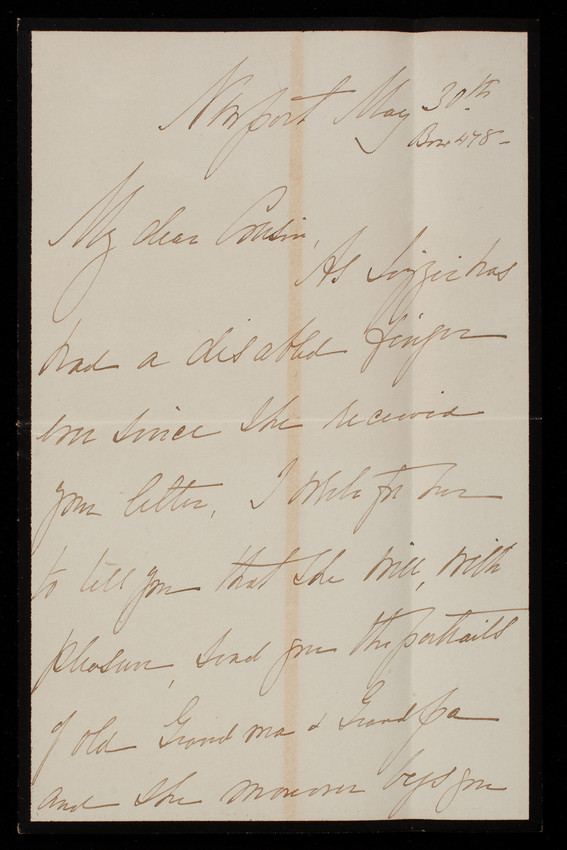 Newport May 30th
Box 478-
My dear Cousin,
As Lizzie has
had a disabled finger
ever since she received
your letter, I write for her
to tell you that she will, with
pleasure, send you the portraits
of old Grandma & Grandpa
and she moreover begs you